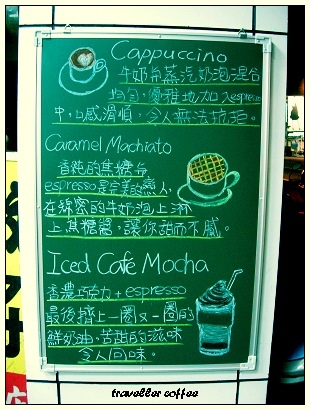 Cappuccino
牛奶常蒸汽奶泡混合
均勻，優雅地加入espresso
中，口感滑順，令人無法抗拒。
Caramel Machiato
香純的焦糖与
espresso是完美的戀人，
在綿密的牛奶泡上淋
上焦糖醬，讓你甜而不膩。
Iced Café Mocha
香濃巧克力+espresso
最後擠上一圈又一圈的
鮮奶油，苦甜的滋味
令人回味。
traveller coffee